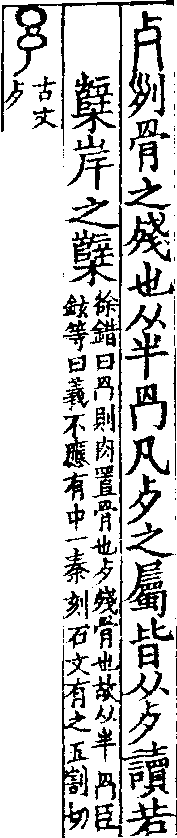 歺𠛱骨之殘也从半冎凡歺之屬皆从歺讀若
櫱岸之櫱
徐鍇曰冎則肉置骨也歺殘骨也故从半冎臣
鉉等曰義不應有中一秦刻石文有之五割切
古文
歺